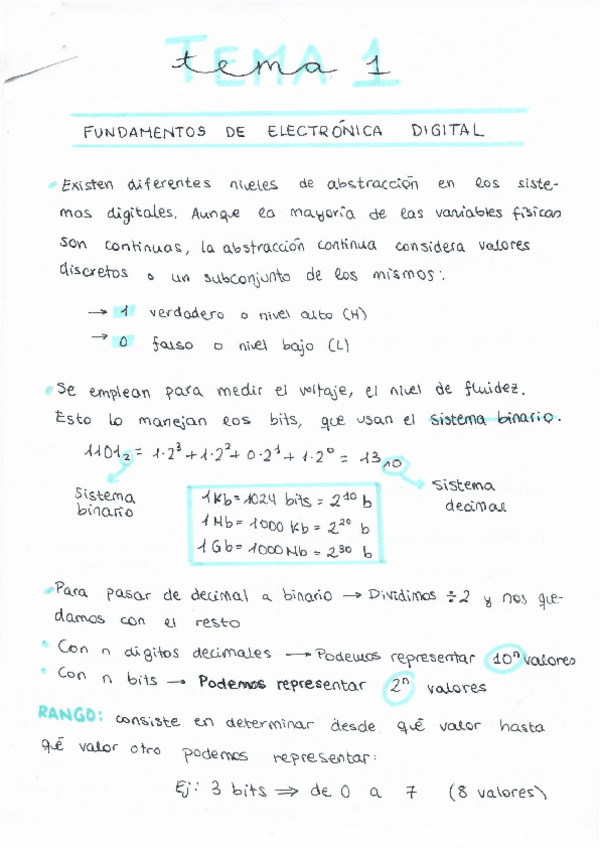 TEMA 1
tema 1
FUNDAMENTOS DE ELECTRÓNICA DIGITAL
Existen diferentes niveles de abstracción en los siste-
mas digitales. Aunque la mayoría de las variables físicas
son continuas, la abstracción continua considera valores
discretos o un subconjunto de los mismos:
→ 1 verdadero o nivel alto (H)
→ 0 falso o nivel bajo (L)
Se emplean para medir el voltaje, el nivel de fluidez.
Esto lo manejan los bits, que usan el sistema binario.
1101₂ = 1·2³+1·2²+0·2¹+1·2⁰ = 13₁₀
Sistema binario
Sistema decimal
1Kb = 1024 bits = 2¹⁰ b
1Mb = 1000 Kb = 2²⁰ b
1Gb = 1000Mb = 2³⁰ b
Para pasar de decimal a binario → Dividimos ÷2 y nos que-
damos con el resto
• Con n dígitos decimales → Podemos representar 10ⁿ valores
• Con n bits → Podemos representar 2ⁿ valores
RANGO: consiste en determinar desde qué valor hasta
qué valor otro podemos representar:
Ej: 3 bits ⇒ de 0 a 7 (8 valores)